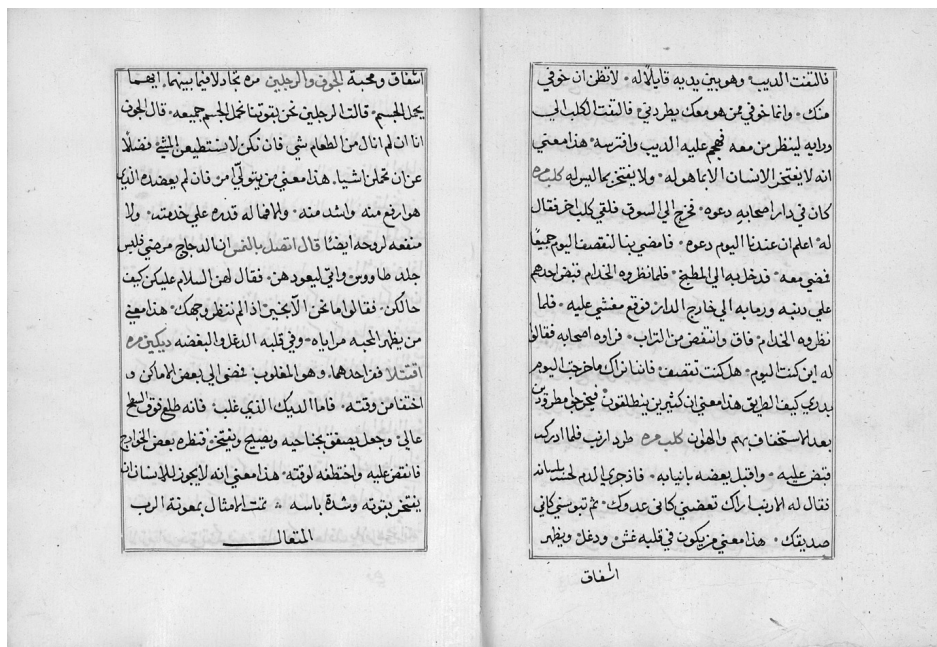 فالتفت الديب وهو بين يديه قايلاً له لا تظن ان خوفي
منك وانما خوفي ممن هو معك يطردني فالتفت الكلب الى
ورايه لينظر من معه فهجم عليه الديب وافترسه هذا معني
انه لا يفتخر الانسان الا بما هو له ولا يفتخر بما ليس له كلب مره
كان في دار اصحابه دعوه فخرج الي السوق فلقي كلب اخر فقال
له اعلم ان عندنا اليوم دعوه فامضي بنا لنقصف اليوم جميعًا
فمضي معه فدخل به الي المطبخ فلما نظروه الخدام قبض احدهم
علي دنبه ورماه به الي خارج الدار فوقع مغشي عليه فلما
نظروه الخدام فاق وانتفض من التراب فراوه اصحابه فقالوا
له اين كنت اليوم هل كنت تقصف فاننا نراك ما خرجت اليوم
بدري كيف الطريق هذا معني ان كثيرين يتطلقون فيخرجوا مطرودين
بعد الاستخفاف بهم والهوان كلب مره طرد ارنب فلما ادركه
قبض عليه واقبل يعضه بانيابه فاذ جري الدم لحسه بلسانه
فقال له الارنب اراك تعضني كاني عدوك ثم تبوسني كاني
صديقك هذا معني من يكون في قلبه غش ودغل ويظهر
اشفاق
اشفاق ومحبة الجوف والرجلين مره تجادلا فيما بينهما ايهما
يحمل الجسم قالت الرجلين نحن لقوتنا نحمل الجسم جميعه قال الجوف
انا ان لم انال من الطعام شي فان تكن لا يستطيعن المشي فضلاً
عن ان تحملن اشيا هذا معني من يتولي امر فان لم يعضده الذي
هو ارفع منه واشد منه والا فما له قدره علي خدمته ولا
منفعه لروحه ايضًا قال اتصل بالنمس ان الدجاج مرضي فلبس
جلد طاووس واتي ليعودهن فقال لهن السلام عليكن كيف
حالكن فقالوا ما نحن الا بخير اذ لم ننظر وجهك هذا معني
من يظهر المحبه مراياه وفي قلبه الدغل والبغضه ديكين مره
اقتتلا ففر احدهما وهو المغلوب فمضي الي بعض الاماكن و
اختفا من وقته فاما الديك الذي غلب فانه طلع فوق السطح
عالي وجعل يصفق بجناحيه ويصيح ويفتخر فنظره بعض الجوارح
فانقض عليه واختطفه لوقته هذا معني انه لا يجوز للانسان ان
يفتخر بقوته وشدة باسه تمت الامثال بمعونة الرب
المتعال